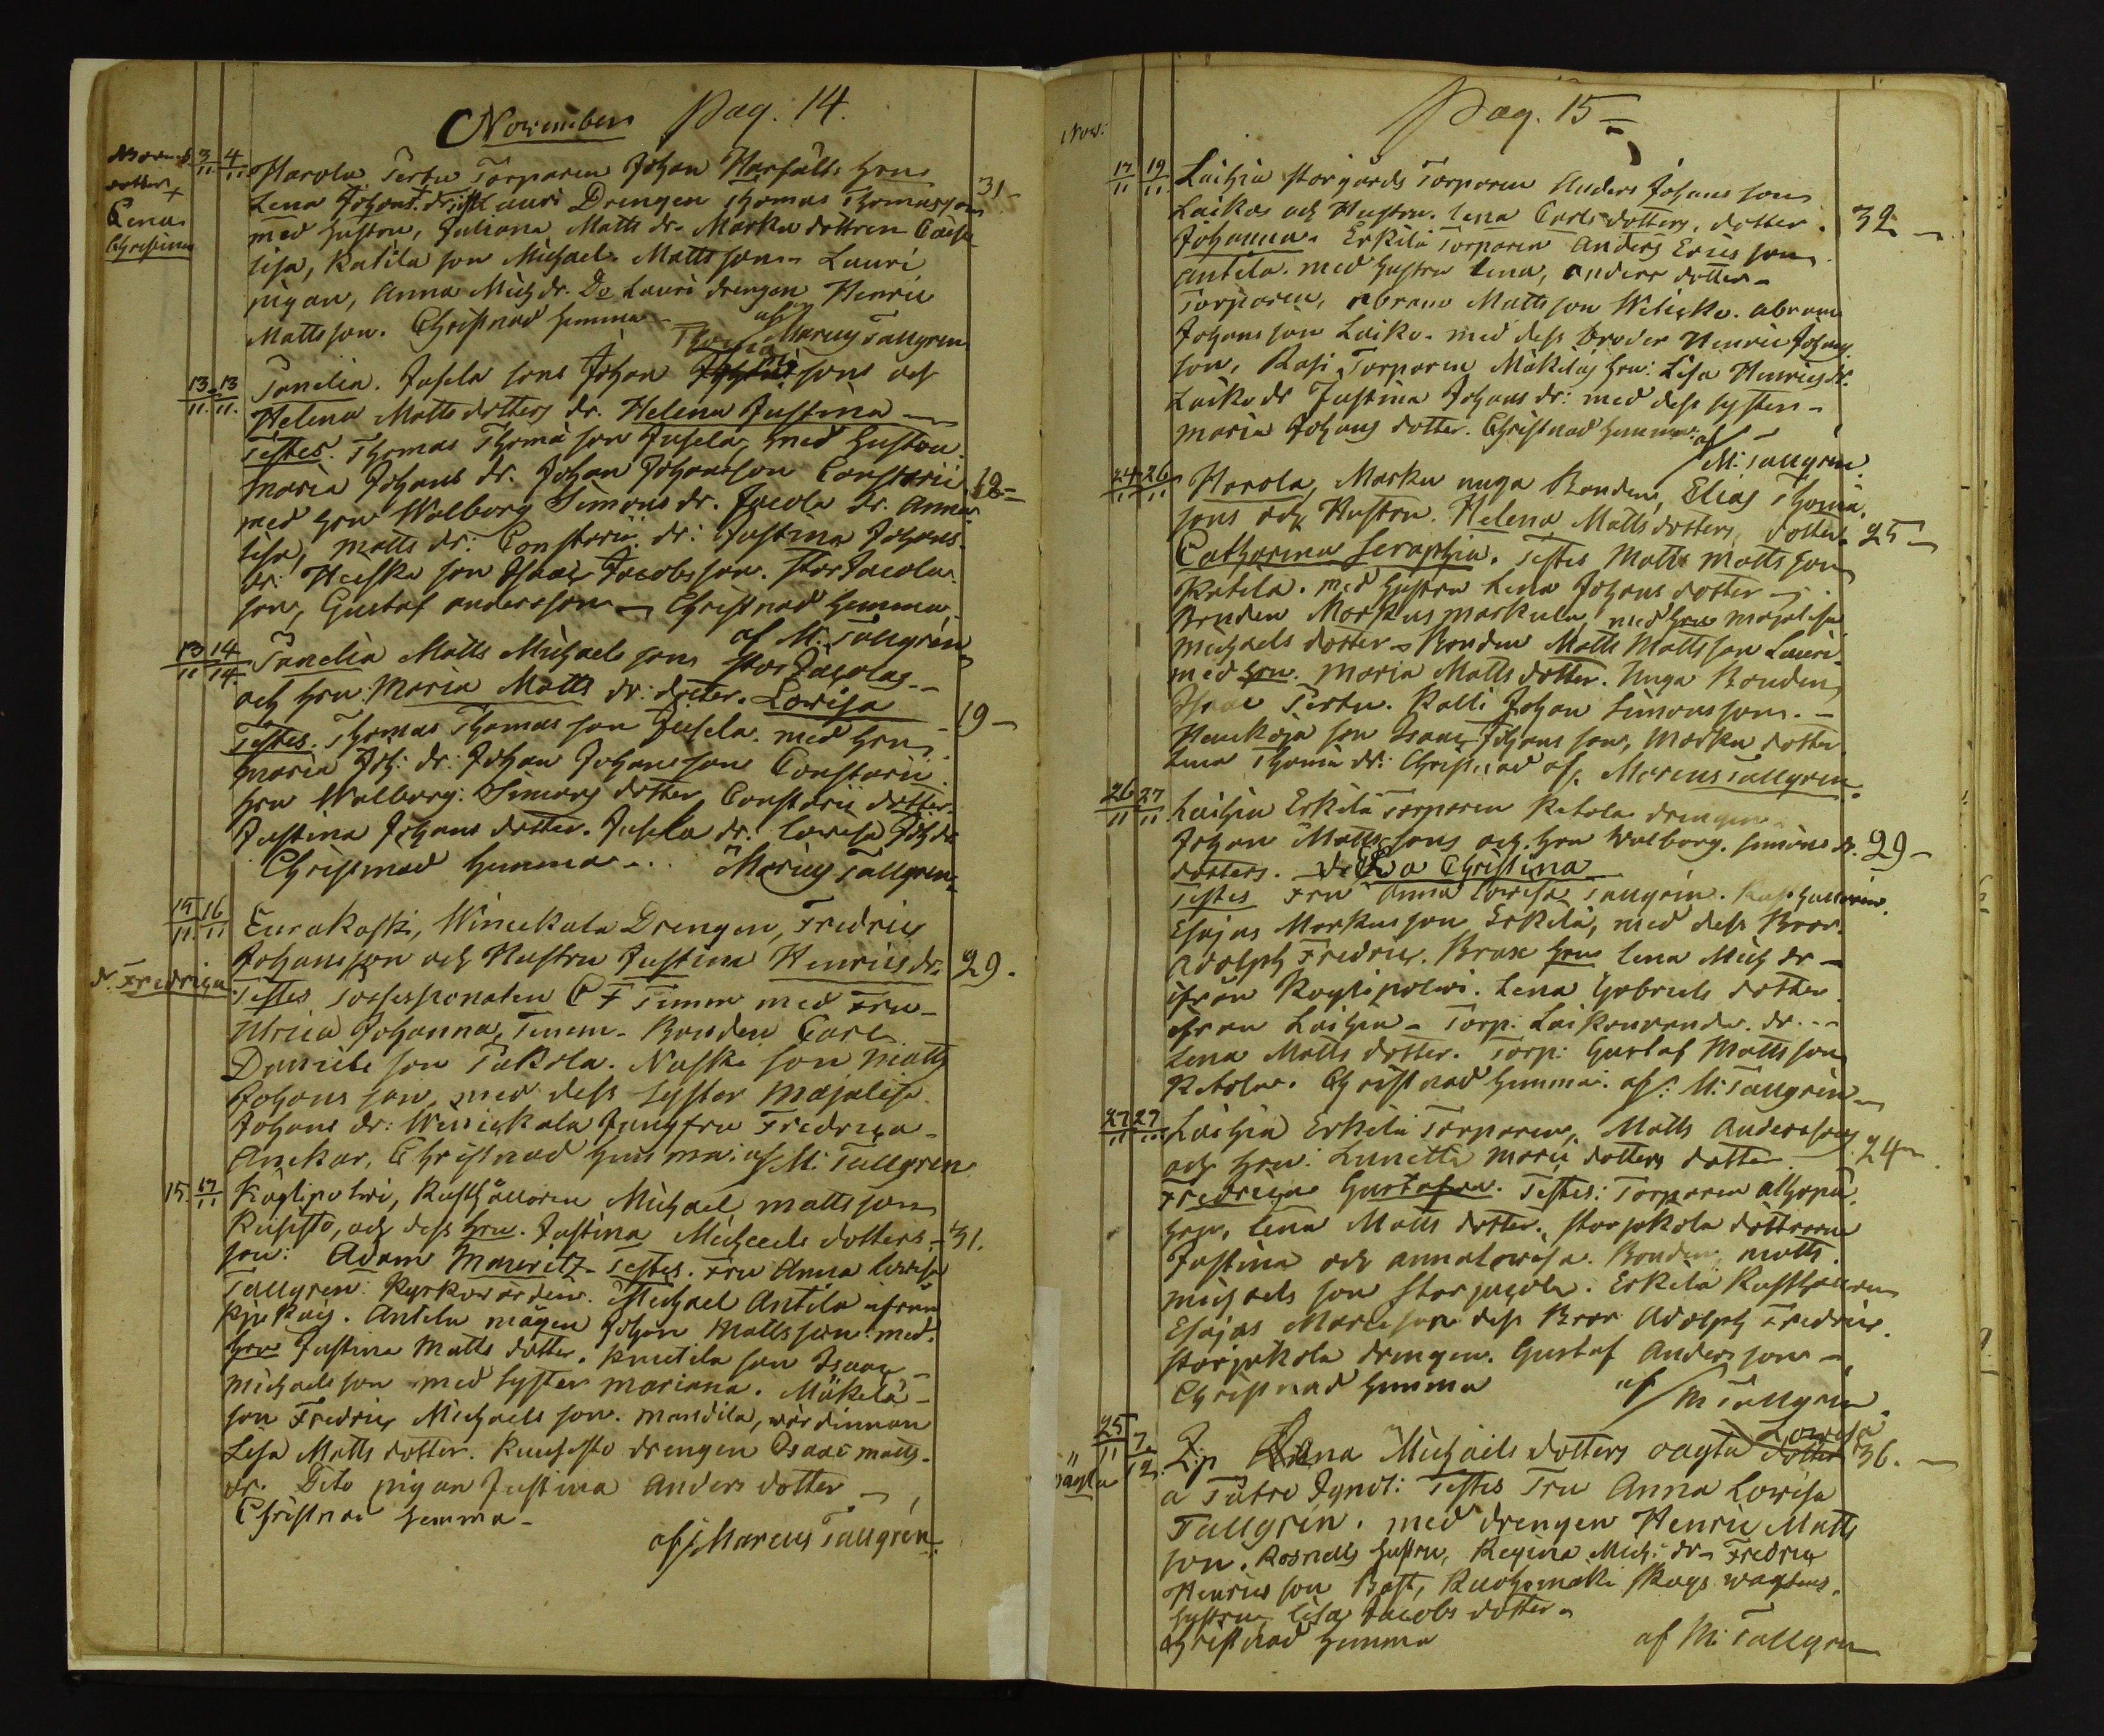 November Pag. 14.
3/11 4/11 Harola Perttu Torparen Johan Harfälts hru
Lena Johans dr: Lauri Drengen Thomas Thomasson 31-
dotter
Lena
Christina
med hustru, Juliana Matts dr. Marku dottren Caisa
lisa, Katila son Michael Mattsson - Lauri
pigan, Anna Mich dr. De Lauri drengen Henric
Mattsson. Christnad hemma
af Marcus Tallgren
13/11 13/11 Panelia. Jusela sons Johan Thomä sons och
Helena Mattsdotters dr. Helena Justina -
Testes. Thomas Thomä son Jusela, med hustru
Maria Johans dr. Johan Johansson Constarii 18-
med hru Walborg Simons dr. Jacola dr. Anna
lisa, Matts dr: Constarii dr: Justina Johans
dr: Heiska son Isaac Jacobsson. Stor Jacola
son, Gustaf andersson - Christnad hemma
af M. Tallgren
13/11 14/14 Panelia Matts Michaels sons Stor Jacolas -
och hru Maria Matts dr: dotter. Lovisa 19-
Testes. Thomas Thomasson Jusela. med hru
Maria Joh: dr: Johan Johansson Constarii
hru Walborg: Simons dotter Constarii dotter
Justina Johans dotter. Jusela dr: Lovisa Joh dr
Christnad hemma - . . Marcus Tallgren
15/11 16/11 Eurakoski, Winickala Drengen, Fredric
Johansson och Hustru Justina Henrics dr: 29.
dr. Fredrica
Testes Possessionaten C F Timm med Fru -
Ulrica Johanna, Timm - Bonden Carl
Daniels son Pakola. Naska son Matts
Johans son, med dess syster Majalisa
Johans dr: Winickala Jungfru Fredrica -
Anckar, Christnad hemma: af M: Tallgren
15. 17/11 Köylipolvi, Rusthållaren Michael mattsson
Kuusisto, och dess hru. Justina Michaels dotters - 31.
son: Adam Mauritz - Testes. Fru Anna lovisa
Tallgren: Kyrkovärden. Michael Antila ifrån
Antila mågen Johan Mattsson: med
hru Justina Matts dotter. Knutila son Isaac -
Michaelsson med syster mariana. Mäkelä -
son Fredric Michaels son. Mandila, wärdinnan
Lisa Matts dotter. Kuusisto drengen Isaac matts -
dr. Dito pigan Justina Anders dotter -
Christnad hemma -
af: Marcus Tallgren.
Nov: Pag. 15 -
17/11 19/11 Laihia storgårds Torparen Anders Johans son
Laikos och Hustru. lena Carls dotters, dotter. 32 -
Johanna. Erkilä Torparen Anders Erics son
Antila. med hustru lena, anders dotter -
Torparen, abram Mattsson abram
Johansson Laiko. med dess broder Henric Johans
son, Rasi Torparen Mäkeläs hru: Lisa Henrics dr.
Laiko dr Justina Johans dr: med dess syster -
Maria Johans dotter. Christnad hemma: af
M: Tallgren
24/11 26/11 Harola, Marku unga Bonden, Elias Thomä
sons och Hustru. Helena Mattsdotters, dotter. 25 -
Catharina Seraphia. Testes Matts Matts son
Katila. med hustru Lena Johans dotter -
Bonden Markus Markula, med hru Majalisa
Michaels dotter - Bonden Matts Mattsson Lauri
med hru. Maria Matts dotter. Unga Bonden,
Isaac Perttu. Kalli Johan Simonsson. -
son Isaac Johans son, Marku dotter
Lena Thomä dr: Christnad af: Marcus Tallgren.
26/11 27/11 Laihia Erkilä Torparen Ketola drengen
Johan Matts sons och hru Walborg. Simons dr. 29 -
dotters. Christina
Testes Fru Anna Lovisa Tallgren. Rusthållaren
Esajas Markusson Erkilä, med dess Bror.
Adolph Fredric. hru lena Mich dr -
ifrån Köylipolvi. Lena Gabriels dotter
ifrån Laihia - Torp: dr. - -
Lena Matts dotter. Torp: Gustaf Mattsson
Ketola. Christnad hemma: af: M: Tallgren -
27/11 27/11 Laihia Erkilä Torparen, Matts Andersson
och hru: Lunetta Marii dotters dotter. 24 -
Fredrica Gustafva. Testes: Torparen
hru, lena Matts dotter. Storjakola döttrarne
Justina och annalovisa. Bonden matts.
Michaels son Storjacola. Erkilä Rusthållaren
Esajas Marcusson dess Bror Adolph Fredric.
Storjakola drengen. Gustaf Andersson -
Christnad hemma af M Tallgren
25/11 7/12 Lovisa
oägta
P:p Anna Michaels dotters oägta dotter 36. -
a Patre Ignot: Testes Fru Anna Lovisa
Tallgren. med drengen Henric Matts
son. Rosnells hustru, Regina Mich: dr - Fredric
Henrics son Bast, Kuohomäki Skogs wagtens
hustru lisa Jacobs dotter -
Christnad hemma af M: Tallgren